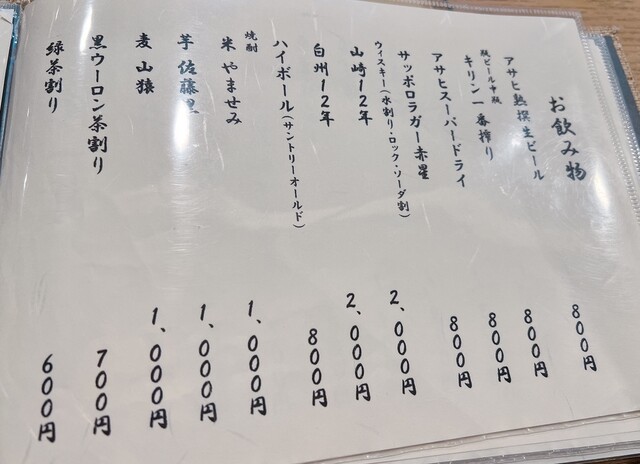 お飲み物
アサヒ熟撰生ビール 800円
瓶ビール中瓶
キリン一番搾り 800円
アサヒスーパードライ 800円
サッポロラガー赤星 800円
ウィスキー(水割り・ロック・ソーダ割)
山崎12年 2,000円
白州12年 2,000円
ハイボール(サントリーオールド) 800円
焼酎
米 やませみ 1,000円
芋 佐藤黒 1,000円
麦 山猿 1,000円
黒ウーロン茶割り 700円
緑茶割り 600円